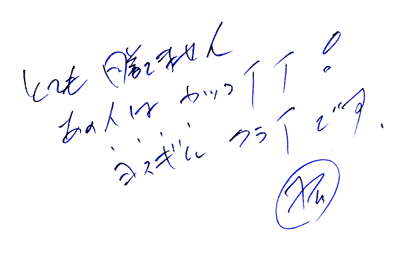 とても勝てません
あの人はカッコイイ!
ヨスギルクライです.